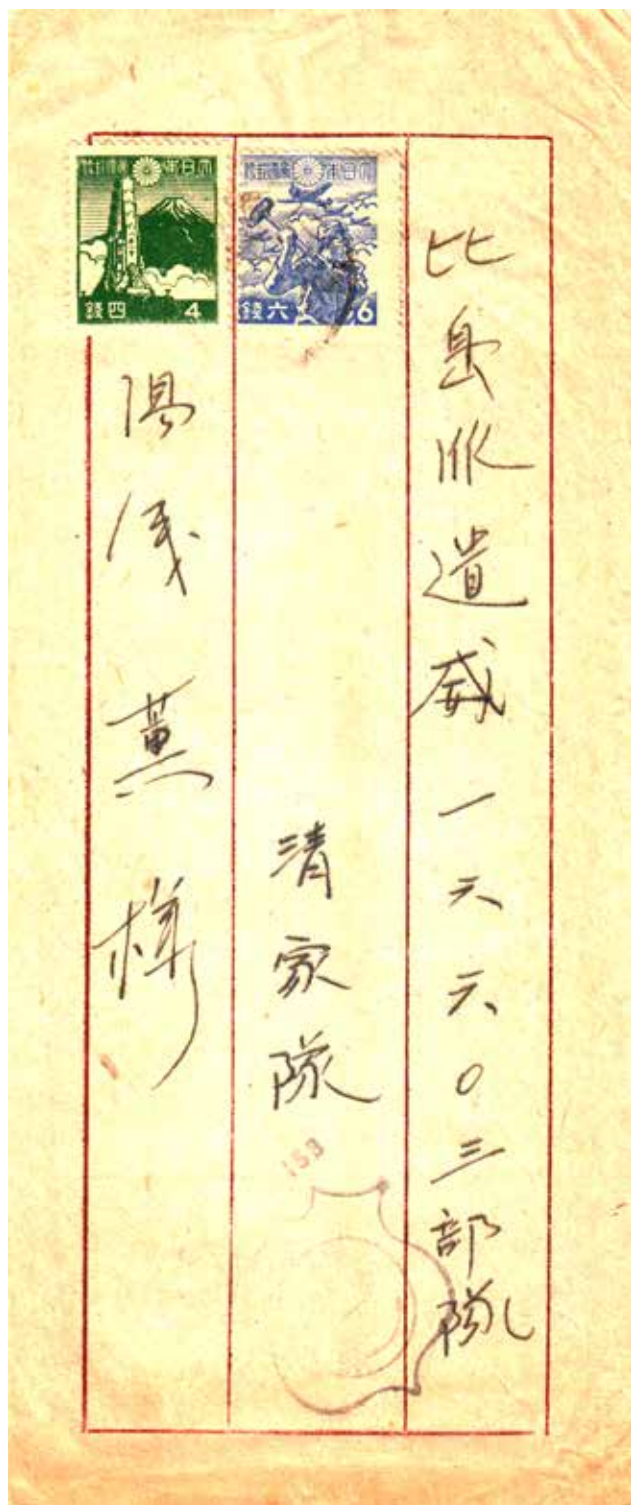 比島派遣威一六六〇三部隊
清家隊
湯浅薫様
大日本帝國郵便
六錢
6
大日本帝國郵便
四錢
4
153